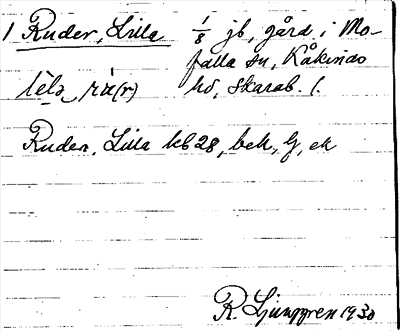 1 Ruder, Lilla 1/8 jb, gård i Mo-
falla sn, Kåkinds
lèlạ rú(r) hd, Skarab. l.
Ruder, Lilla kb28, bek, lj, ek
R. Ljunggren 1930